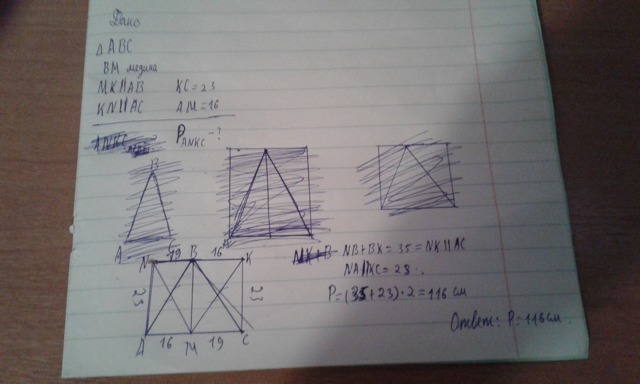 Дано
△ABC
BM медина
MK||AB KC=23
KN||AC AM=16
P ANKC -?
B
A C
N 19 B 16 K
23 23
A 16 M 19 C
NB+BK=35=NK||AC
NA||KC=23
P=(35+23)·2=116 см
Ответ: P=116 см.